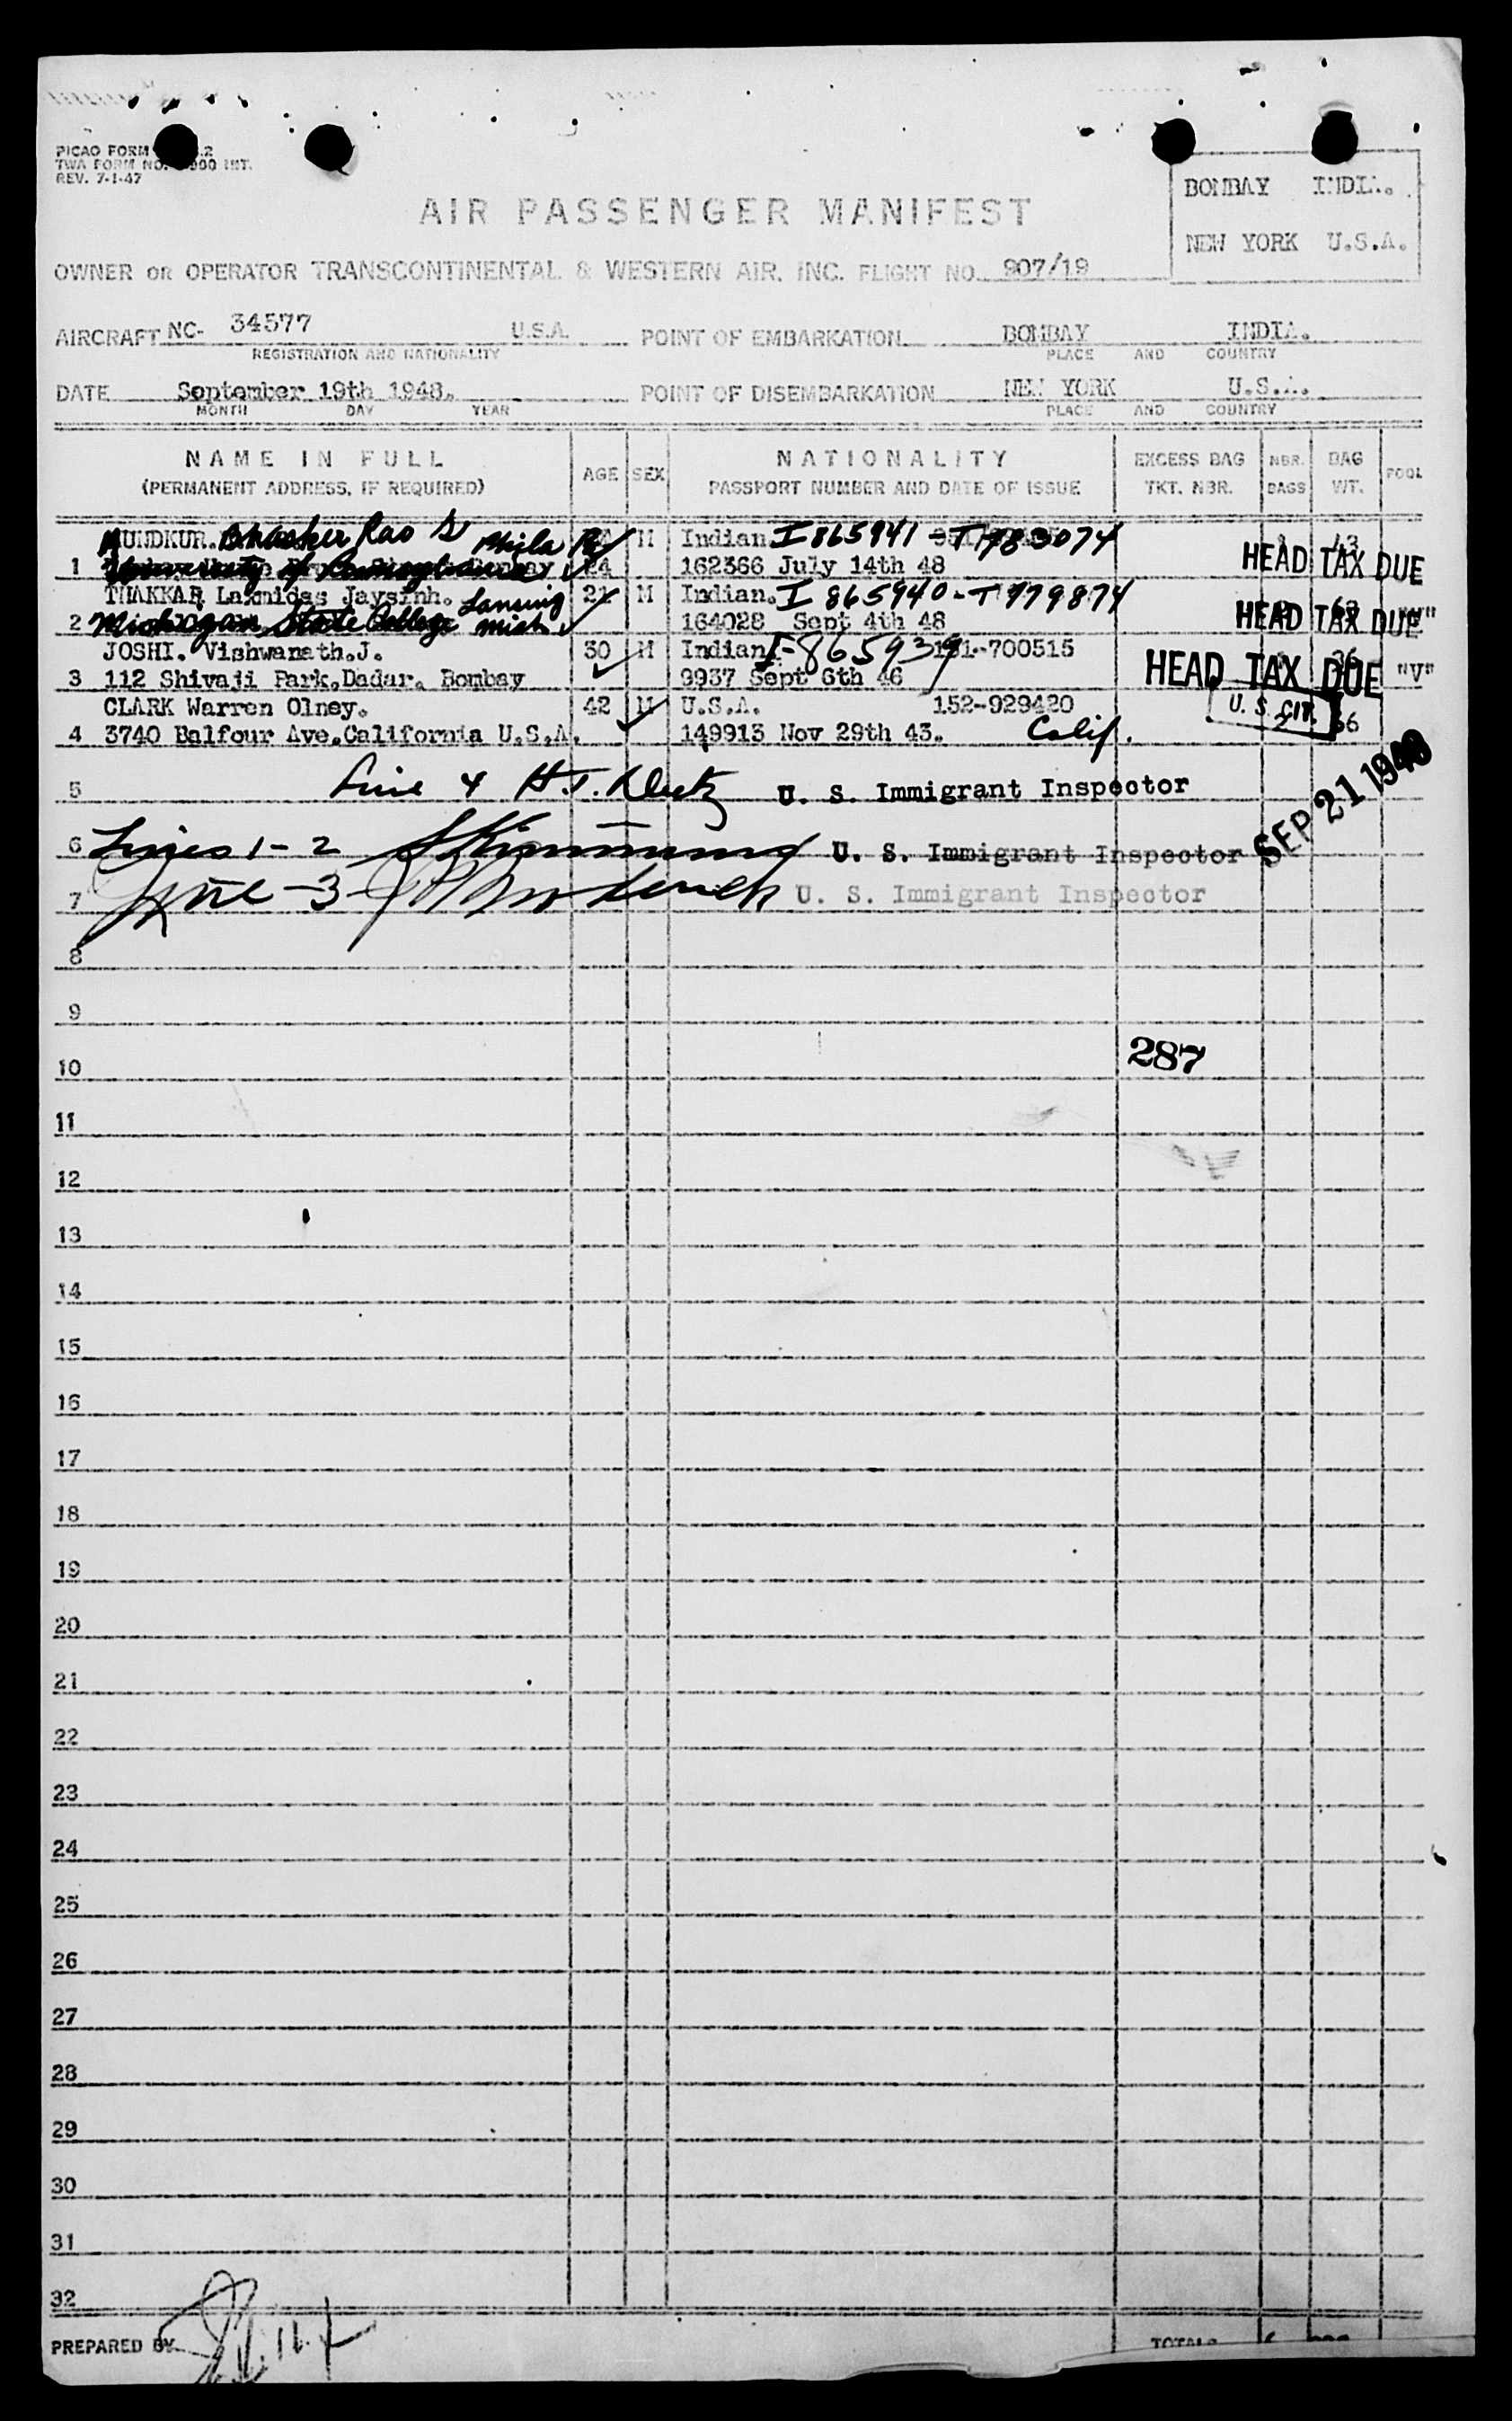 PICAO FORM .2
TWA FORM NO. 900 INT.
REV. 7-1-47
BOMBAY INDIA.
NEW YORK U.S.A.
AIR PASSENGER MANIFEST
OWNER OR OPERATOR TRANSCONTINENTAL & WESTERN AIR, INC. FLIGHT NO. 907/19
AIRCRAFT NC- 34577 U.S.A. POINT OF EMBARKATION BOMBAY INDIA.
REGISTRATION AND NATIONALITY PLACE AND COUNTRY
DATE September 19th 1948. POINT OF DISEMBARKATION NEW YORK U.S.A.
MONTH DAY YEAR PLACE AND COUNTRY
NAME IN FULL AGE SEX NATIONALITY EXCESS BAG NBR. BAG POOL
(PERMANENT ADDRESS, IF REQUIRED) PASSPORT NUMBER AND DATE OF ISSUE TKT. NBR. BAGS WT.
MUNDKUR. Bhasker Rao S Phila Pa M Indian I 865941 - T 783074
1 University of Pennsylvania 24 162366 July 14th 48 HEAD TAX DUE
THAKKAR Laxmidas Jaysinh. Lansing 21 M Indian. I 865940 - T 779874
2 Michigan State College Mich 164028 Sept 4th 48 HEAD TAX DUE "V"
JOSHI. Vishwanath.J. 30 M Indian I-865939 151-700515
3 112 Shivaji Park.Dadar. Bombay 9937 Sept 6th 46 HEAD TAX DUE "V"
CLARK Warren Olney. 42 M U.S.A. 152-929420 U. S. CIT.
4 3740 Balfour Ave.California U.S.A. 149913 Nov 29th 43. Calif. 66
5 Line 4 H.T. U. S. Immigrant Inspector
SEP 21 1948
6 Lines 1-2 U. S. Immigrant Inspector
7 Line-3- U. S. Immigrant Inspector
8
9
287
10
11
12
13
14
15
16
17
18
19
20
21
22
23
24
25
26
27
28
29
30
31
32
PREPARED BY TOTALS